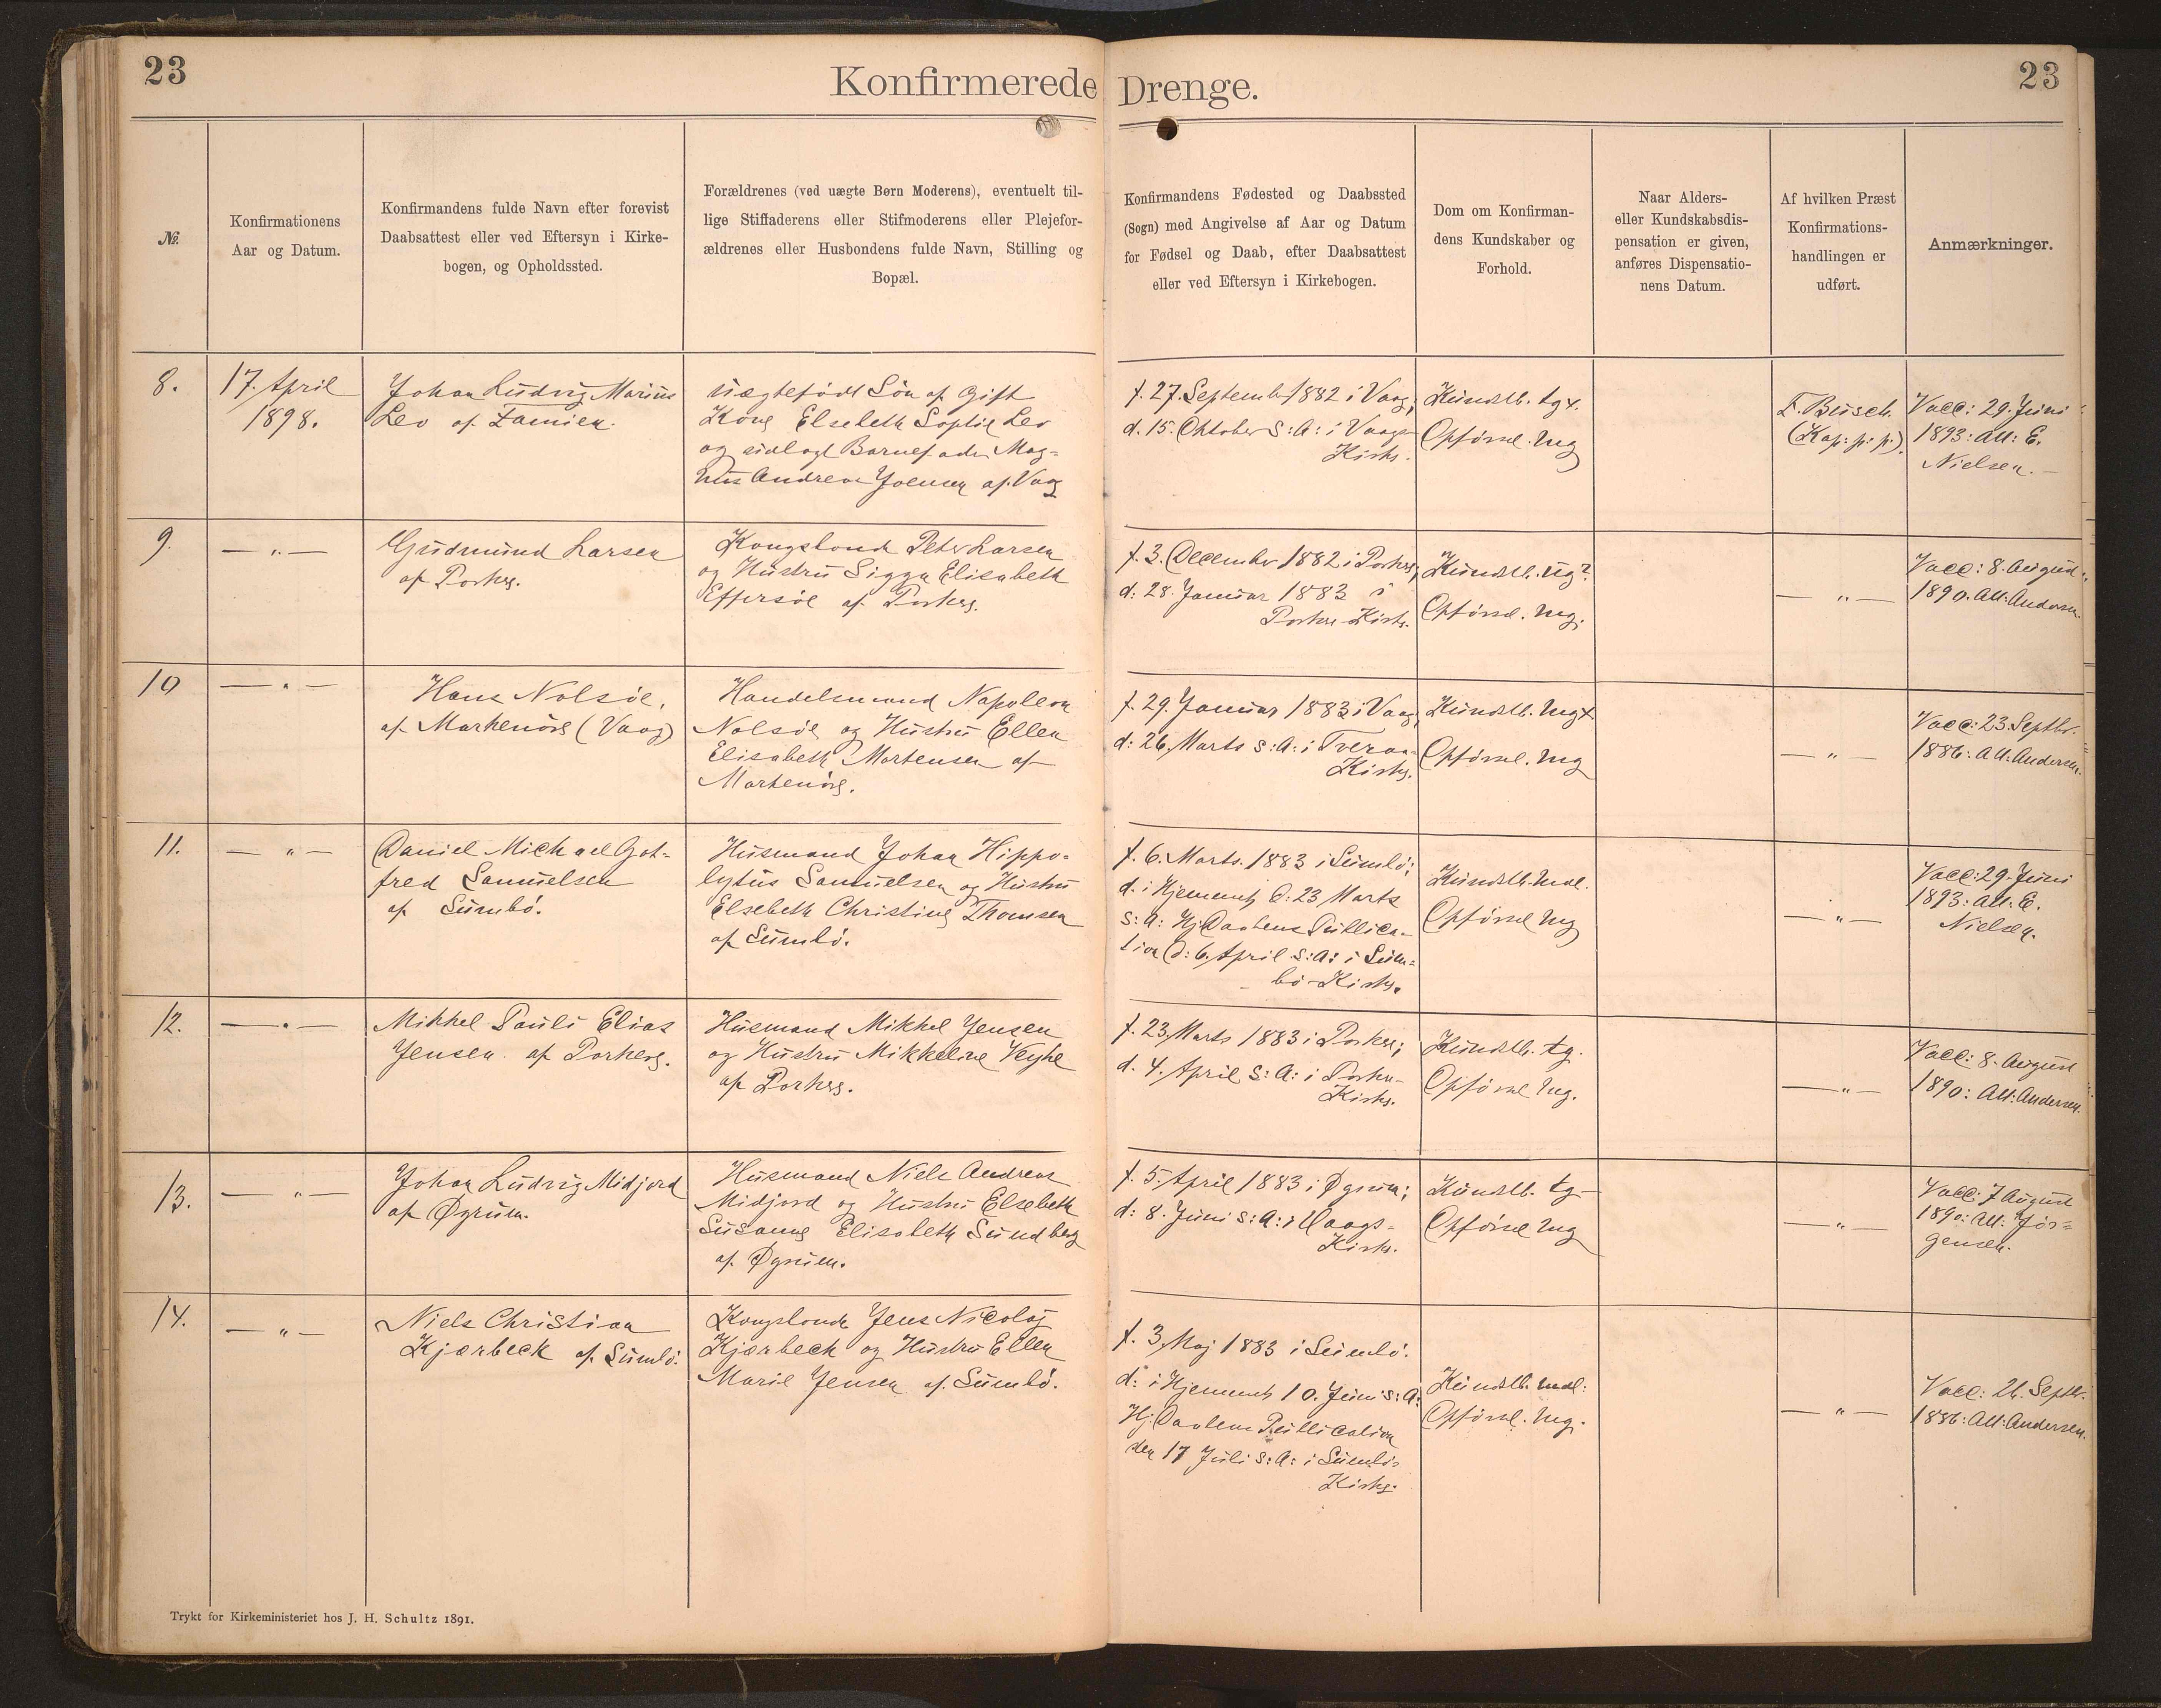 23
Konfirmerede Drenge.
23
№.
Konfirmationens
Aar og Datum.
Konfirmandens fulde Navn efter forevist
Daabsattest eller ved Eftersyn i Kirke-
bogen, og Opholdssted.
Forældrenes (ved uægte Børn Moderens), eventuelt til-
lige Stiffaderens eller Stifmoderens eller Plejefor-
ældrenes eller Husbondens fulde Navn, Stilling og
Bopæl.
Konfirmandens Fødested og Daabssted
(Sogn) med Angivelse af Aar og Datum
for Fødsel og Daab, efter Daabsattest
eller ved Eftersyn i Kirkebogen.
Dom om Konfirman-
dens Kundskaber og
Forhold.
Naar Alders-
eller Kundskabsdis-
pensation er given,
anføres Dispensatio-
nens Datum.
Af hvilken Præst
Konfirmations-
handlingen er
udført.
Anmærkninger.
8.
17. April
1898.
Johan Ludvig Marius
Lev af Famien.
Uægtefødt Søn af Gift
Kone Elsebeth Sophie Lev
og udlagt Barnefader Mag-
nus Andreas Joensen af Vaag
f. 27. Septemb. 1882 i Vaag;
d. 15. Oktober S: A: i Vaags
Kirke.
Kundsk. tgx.
Opførsel. mg
F. Busch.
(Kap: p: p:).
Vacc: 29. Juni
1893: Att: E.
Nielsen.
9.
— „ —
Gudmund Larsen
af Porkere.
Kongsbonde Peter Larsen
og Hustru Sigga Elisabeth
Effersøe af Porkere.
f. 3. December 1882 i Porkere;
d: 28. Januar 1883 i
Porkere Kirke.
Kundsk. ug?
Opførsel. mg.
— „ —
Vacc: 8. August
1890. Att: Andersen.
10
— „ —
Hans Nolsøe,
af Markenøre (Vaag)
Handelsmand Napoleon
Nolsøe og Hustru Ellen
Elisabeth Mortensen af
Markenøre.
f. 29. Januar 1883 i Vaag;
d: 26. Marts S: A: i Tveraa-
Kirke.
Kundsk. mgx.
Opførsel. mg
— „ —
Vacc: 23. Septbr.
1886: Att: Andersen.
11.
— „ —
Daniel Michael Got-
fred Samuelsen
af Sumbø.
Husmand Johan Hippo-
lytus Samuelsen og Hustru
Elsebeth Christine Thomsen
af Sumbø.
f. 6. Marts. 1883 i Sumbø;
d. i Hjemmet d: 23 Marts
S: A: Hj: Daabens Publica-
tion d: 6. April S: A: i Sum-
bø-Kirke.
Kundsk. mdl.
Opførsel mg
— „ —
Vacc: 29. Juni
1893: Att: E.
Nielsen.
12.
— „ —
Mikkel Pauli Elias
Jensen af Porkere.
Husmand Mikkel Jensen
og Hustru Mikkeline Veyhe
af Porkere.
f. 23. Marts 1883 i Porkere;
d. 4. April S: A: i Porkere-
Kirke.
Kundsk. tg.
Opførsel mg.
— „ —
Vacc: 8. August
1890: Att: Andersen.
13.
— „ —
Johan Ludvig Midjord
af Øgrum.
Husmand Niels Andreas
Midjord og Hustru Elsebeth
Susanne Elisabeth Sundberg
af Øgrum.
f. 5. April 1883 i Øgrum;
d: 8. Juni S: A: i Vaags-
Kirke.
Kundsk. tg-
Opførsel mg
— „ —
Vacc: 7 August
1890: Att: Jør-
gensen.
14.
— „ —
Niels Christian
Kjærbeck af Sumbø.
Kongsbonde Jens Nicolaj
Kjærbeck og Hustru Ellen
Marie Jensen af Sumbø.
f. 3. Maj 1883 i Sumbø.
d: i Hjemmet 10. Juni S: A:
Hj: Daabens Publication
den 17 Juli S: A: i Sumbø-
Kirke.
Kundsk. mdl:
Opførsel. mg.
— „ —
Vacc: 26. Septbr.
1886: Att: Andersen.
Trykt for Kirkeministeriet hos J. H. Schultz 1891.